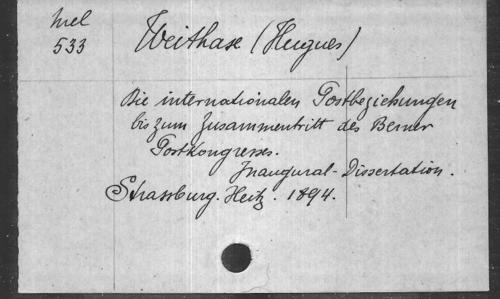 Mel
533
Weithase (Hugues)
Die internationalen Postbeziehungen
bis zum Zusammentritt des Berner
Postkongresses.
Inaugural-Dissertation.
Strassburg. Heitz. 1894.